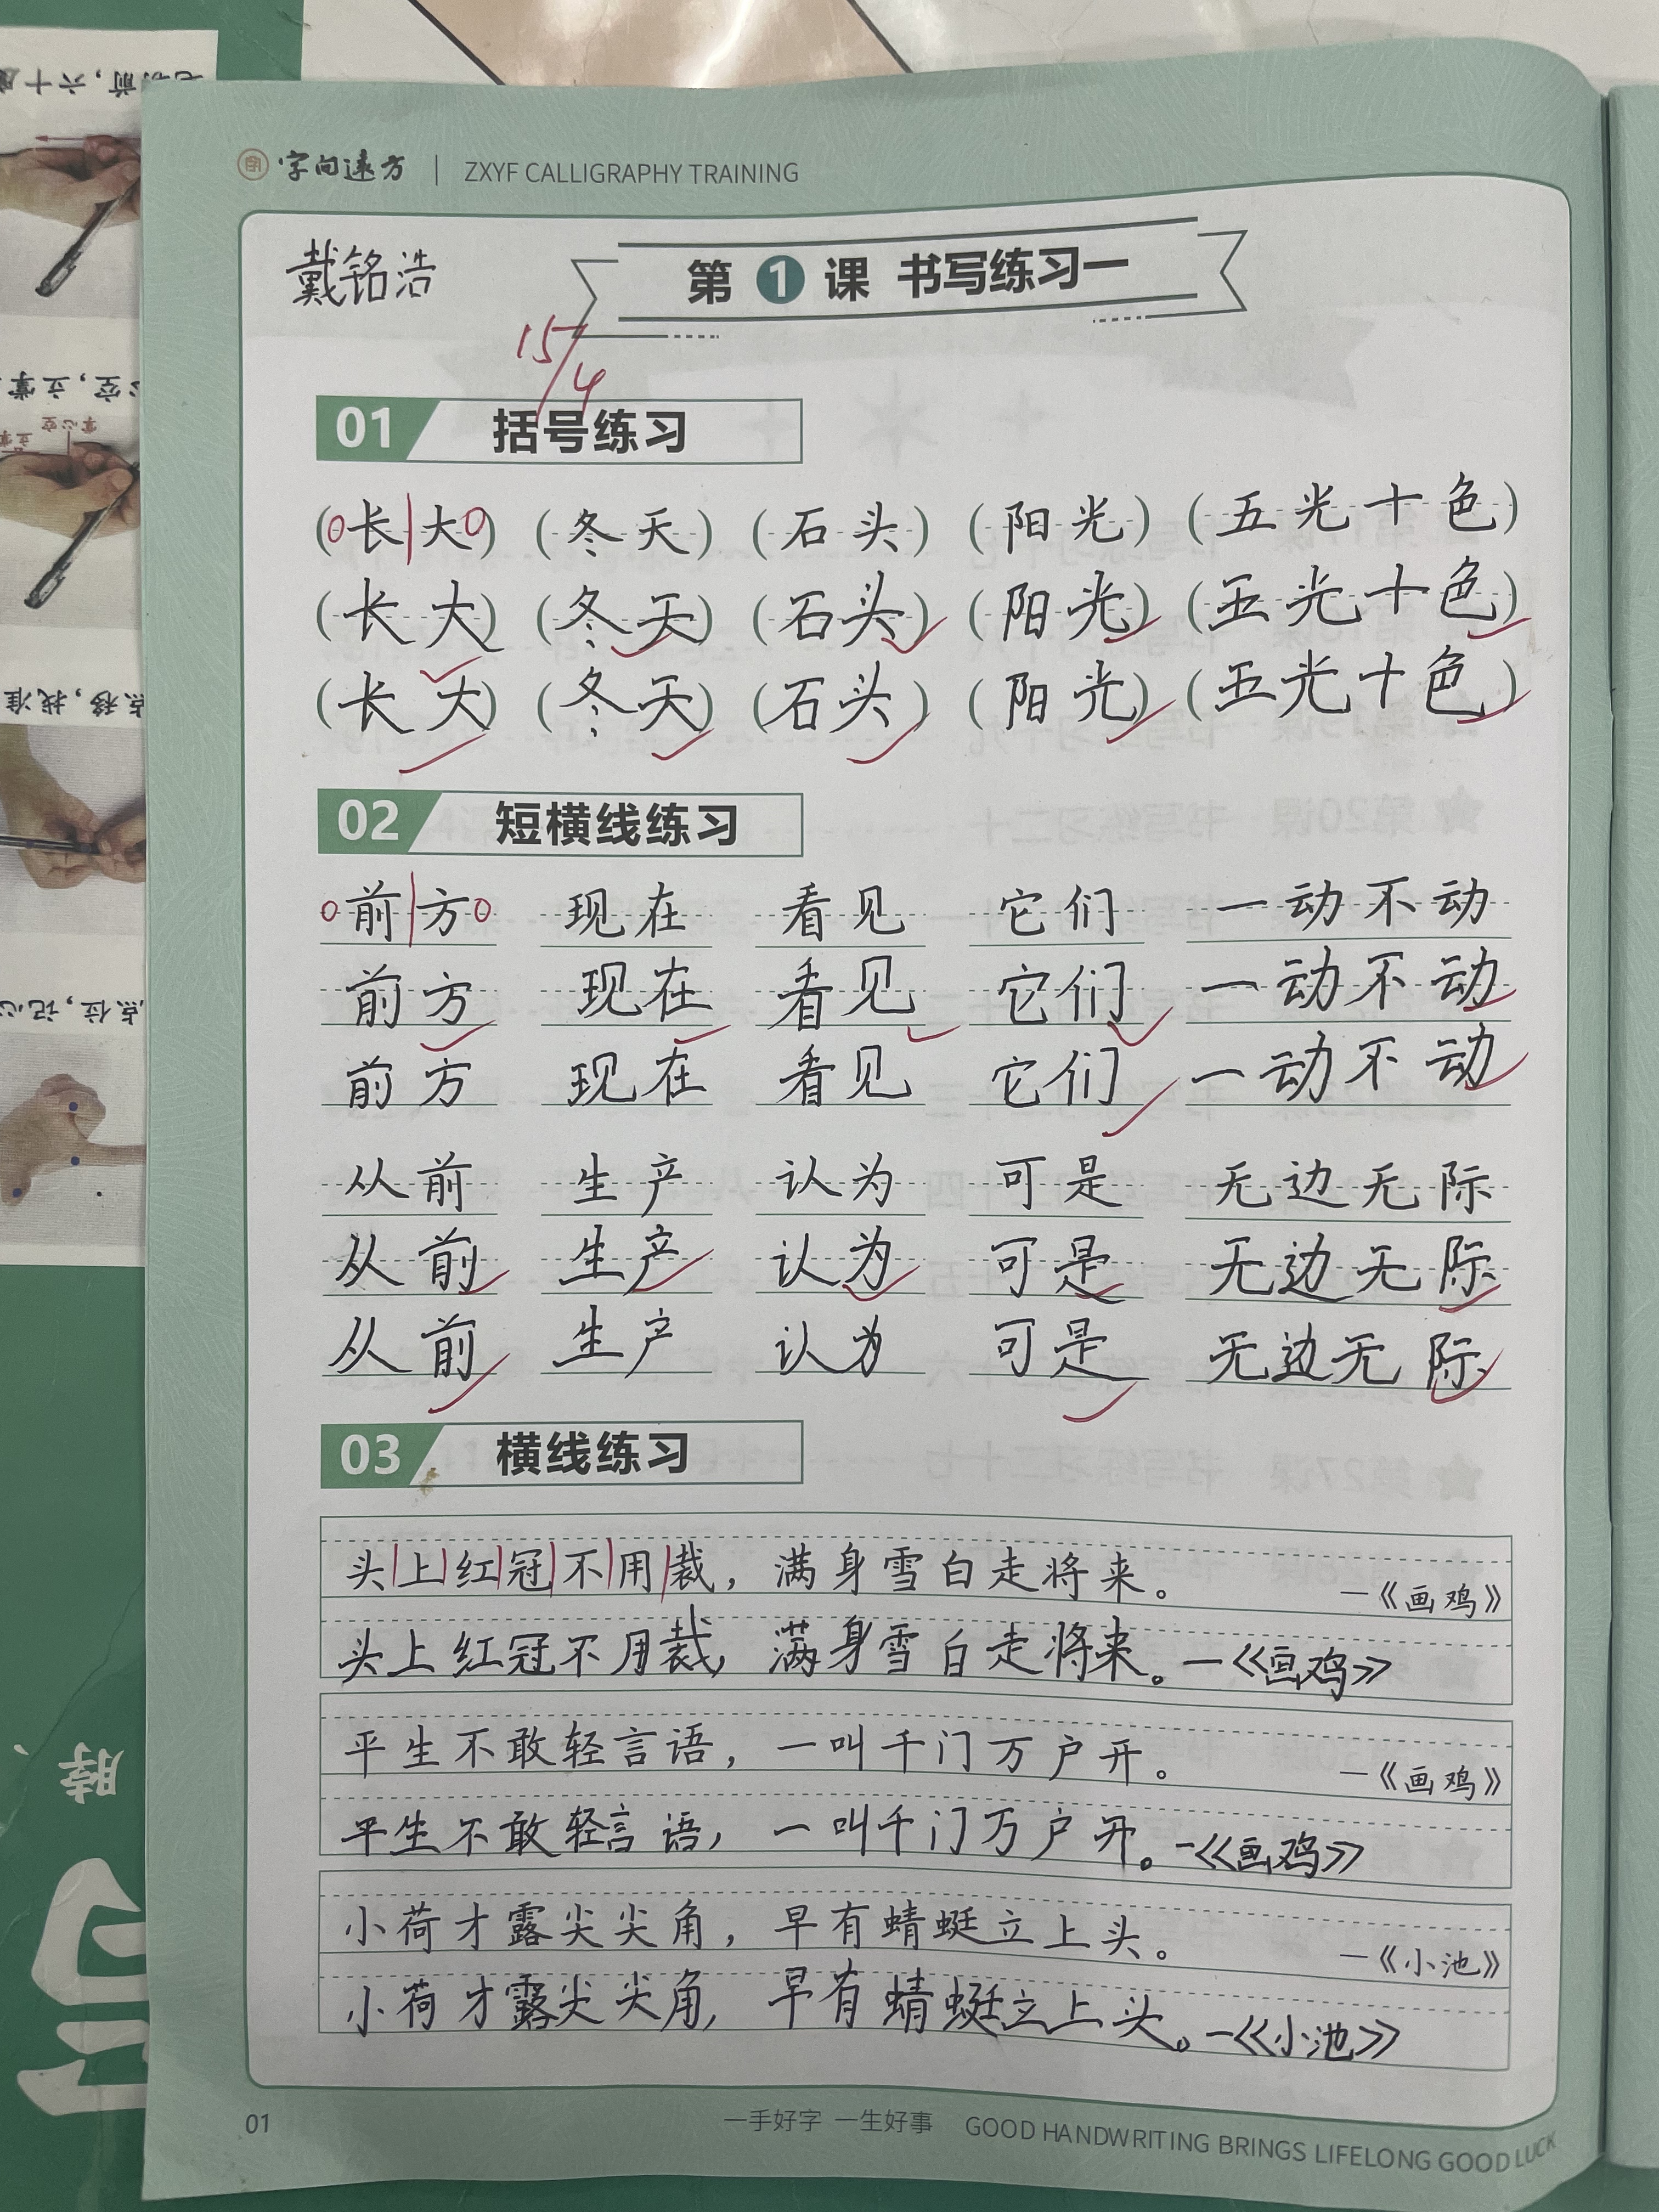 字向远方 | ZXYF CALLIGRAPHY TRAINING
戴铭浩
第1课 书写练习一
15/4
01 括号练习
(长大) (冬天) (石头) (阳光) (五光十色)
(长大) (冬天) (石头) (阳光) (五光十色)
(长大) (冬天) (石头) (阳光) (五光十色)
02 短横线练习
前方 现在 看见 它们 一动不动
前方 现在 看见 它们 一动不动
前方 现在 看见 它们 一动不动
从前 生产 认为 可是 无边无际
从前 生产 认为 可是 无边无际
从前 生产 认为 可是 无边无际
03 横线练习
头上红冠不用裁，满身雪白走将来。 —《画鸡》
头上红冠不用裁，满身雪白走将来。—《画鸡》
平生不敢轻言语，一叫千门万户开。 —《画鸡》
平生不敢轻言语，一叫千门万户开。—《画鸡》
小荷才露尖尖角，早有蜻蜓立上头。 —《小池》
小荷才露尖尖角，早有蜻蜓立上头。—《小池》
01 一手好字 一生好事 GOOD HANDWRITING BRINGS LIFELONG GOOD LUCK